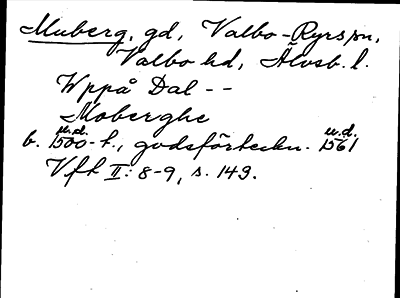 Muberg, gd, Valbo-Ryrs sn,
Valbo hd, Älvsb. l.
Wppå Dal - -
Moberghe
u.d. u.d.
b. 1500-t., godsförteckn. 1561
Vft II: 8-9, s. 149.